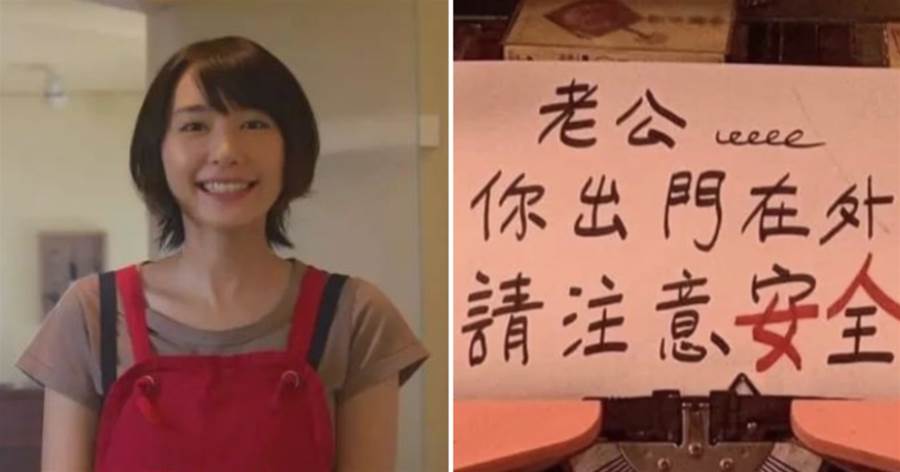 老公
你出門在外
請注意安全